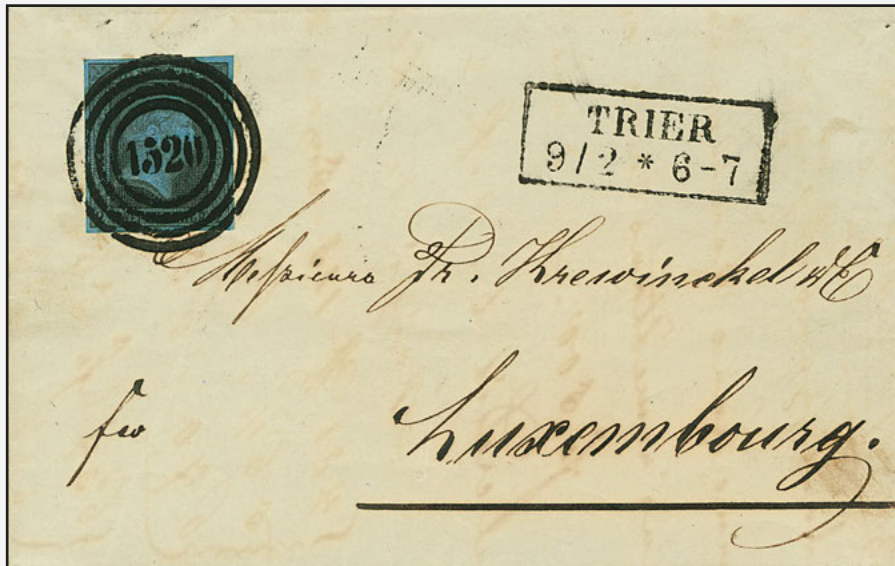 1520
TRIER
9/2 * 6-7
Messieurs Fr. Krewinckel & C
fco
Luxembourg.